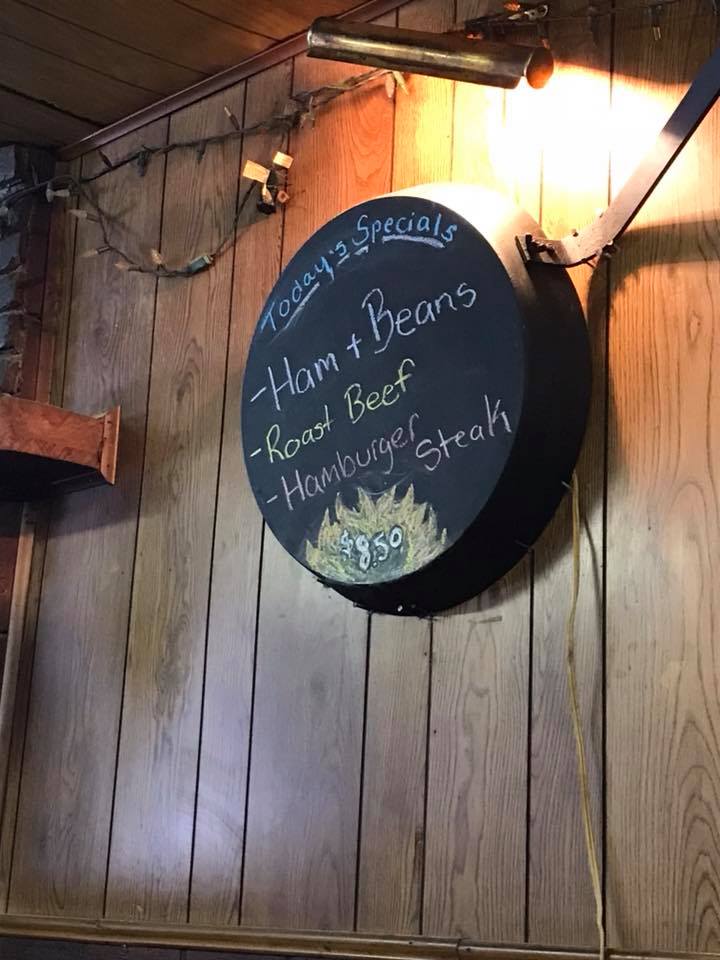 Today's Specials
-Ham + Beans
-Roast Beef
-Hamburger Steak
$8.50